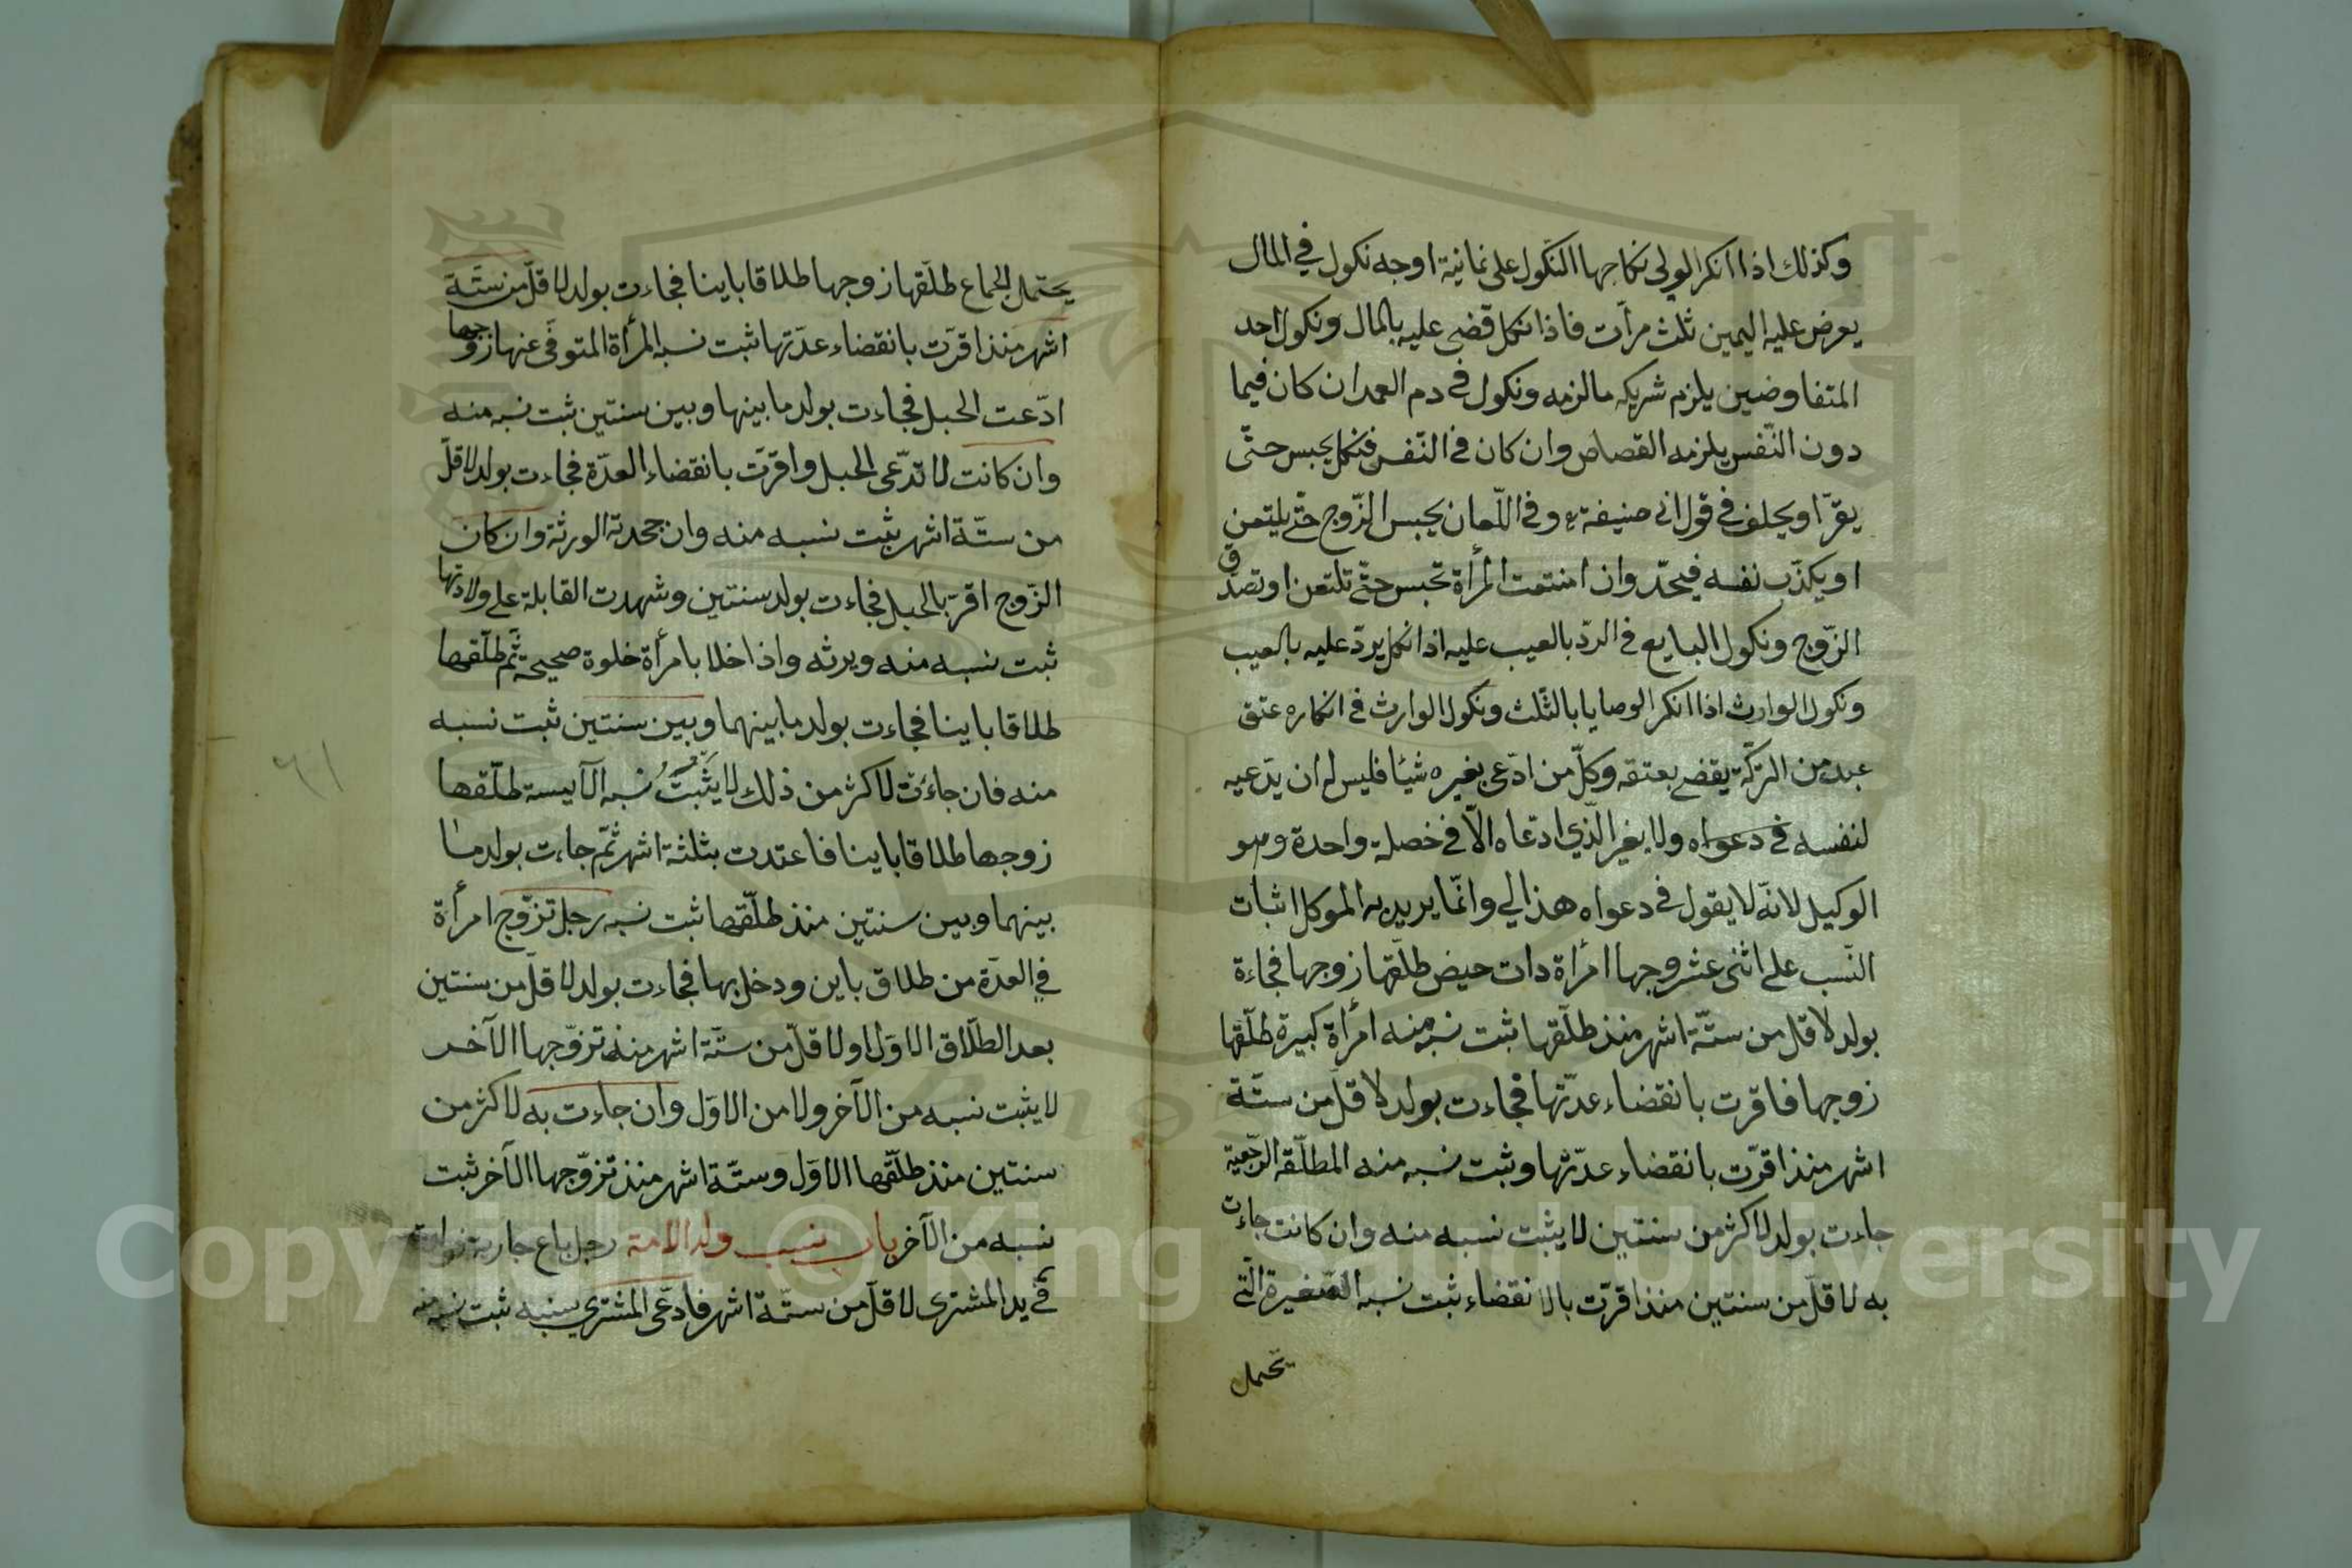 وكذلك اذا انكر الولى نكاحها النّكول على ثمانية اوجه نكول فى المال
يعرض عليه اليمين ثلث مرّات فاذا نكل قضى عليه بالمال ونكول احد
المتفاوضين يلزم شريكه مالزمه ونكول فى دم العمد ان كان فيما
دون النّفس يلزمه القصاص وان كان فى النّفس فنكل يحبس حتّى
يقرّ او يحلف فى قول ابى حنيفة وفى اللّعان يحبس الزّوج حتّى يلتعن
او يكذّب نفسه فيحدّ وان امتنعت المرأة تحبس حتّى تلتعن او تصدّق
الزّوج ونكول البايع فى الردّ بالعيب عليه اذا نكل يردّ عليه بالعيب
ونكول الوارث اذا انكر الوصايا بالثّلث ونكول الوارث فى انكاره عتق
عبد من التركّة يقضى بعتقه وكلّ من ادّعى بغيره شيئا فليس له ان يدّعيه
لنفسه فى دعواه ولا بغير الذّى ادّعاه الّا فى خصلة واحدة وهو
الوكيل لانّه لا يقول فى دعواه هذا لي وانّما يريد به الموكل اثبات
النّسب على اثنى عشر وجها امرأة دات حيض طلّقها زوجها فجاءة
بولد لاقل من ستّة اشهر منذ طلّقها ثبت نسبه منه امرأة كبيرة طلّقها
زوجها فاقرت بانقضاء عدّتها فجاءت بولد لاقلّ من ستّة
اشهر منذ اقرّت بانقضاء عدّتها وثبت نسبه منه المطلّقه الرّجعية
جاءت بولد لاكثر من سنتين لا يثبت نسبه منه وان كانت جاءت
به لاقلّ من سنتين منذ اقرّت بالانقضاء ثبت نسبه الصّغيرة الّتى
تحمل
يحتمل الجماع طلّقها زوجها طلاقا باينا فجاءت بولد لاقلّ من ستّة
اشهر منذ اقرّت بانقضاء عدّتها ثبت نسبه المرأة المتوفّى عنها زوجها
ادّعت الحبل فجاءت بولد ما بينها وبين سنتين ثبت نسبه منه
وان كانت لا تدّعى الحبل واقرّت بانقضاء العدّة فجاءت بولد لاقلّ
من ستّة اشهر يثبت نسبه منه وان جحدته الورثة وان كان
الزّوج اقرّ بالحبل فجاءت بولد سنتين وشهدت القابلة على ولادتها
ثبت نسبه منه ويرثه واذا خلا بامرأة خلوة صحيحة ثمّ طلّقها
طلاقا باينا فجاءت بولد ما بينهما وبين سنتين ثبت نسبه
منه فان جاءت لاكثر من ذلك لا يثبت نسبه الآيسة طلّقها
زوجها طلاقا باينا فاعتدت بثلثة اشهر ثمّ جاءت بولد ما
بينهما وبين سنتين منذ طلّقها ثبت نسبه رجل تزّوج امرأة
فى العدّة من طلاق باين ودخل بها فجاءت بولد لاقلّ من سنتين
بعد الطّلاق الاوّل ولاقلّ من ستّة اشهر منذ تزوّجها الآخر
لا يثبت نسبه من الآخر ولا من الاوّل وان جاءت به لاكثر من
سنتين منذ طلّقها الاوّل وستّة اشهر منذ تزوّجها الآخر ثبت
نسبه من الآخر باب نسب ولد الامة رجل باع جارية فولدت
فى يد المشترى لاقلّ من ستّة اشهر فادّعى المشترى نسبه ثبت نسبه منه
٦١
Copyright © King Saud University